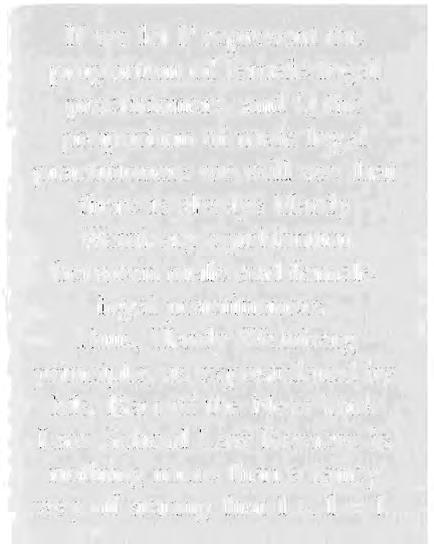 If we let P represent the
proportion of female legal
practitioners and Q the
proportion of male legal
practitioners we will see that
there is always Hardy
Weinberg equilibrium
between male and female
legal practitioners.
Hardy Weinberg
principle, as by
Mr. of the New York
Law School Law Review is
nothing more than a fancy
way of saying that 1 = 1.